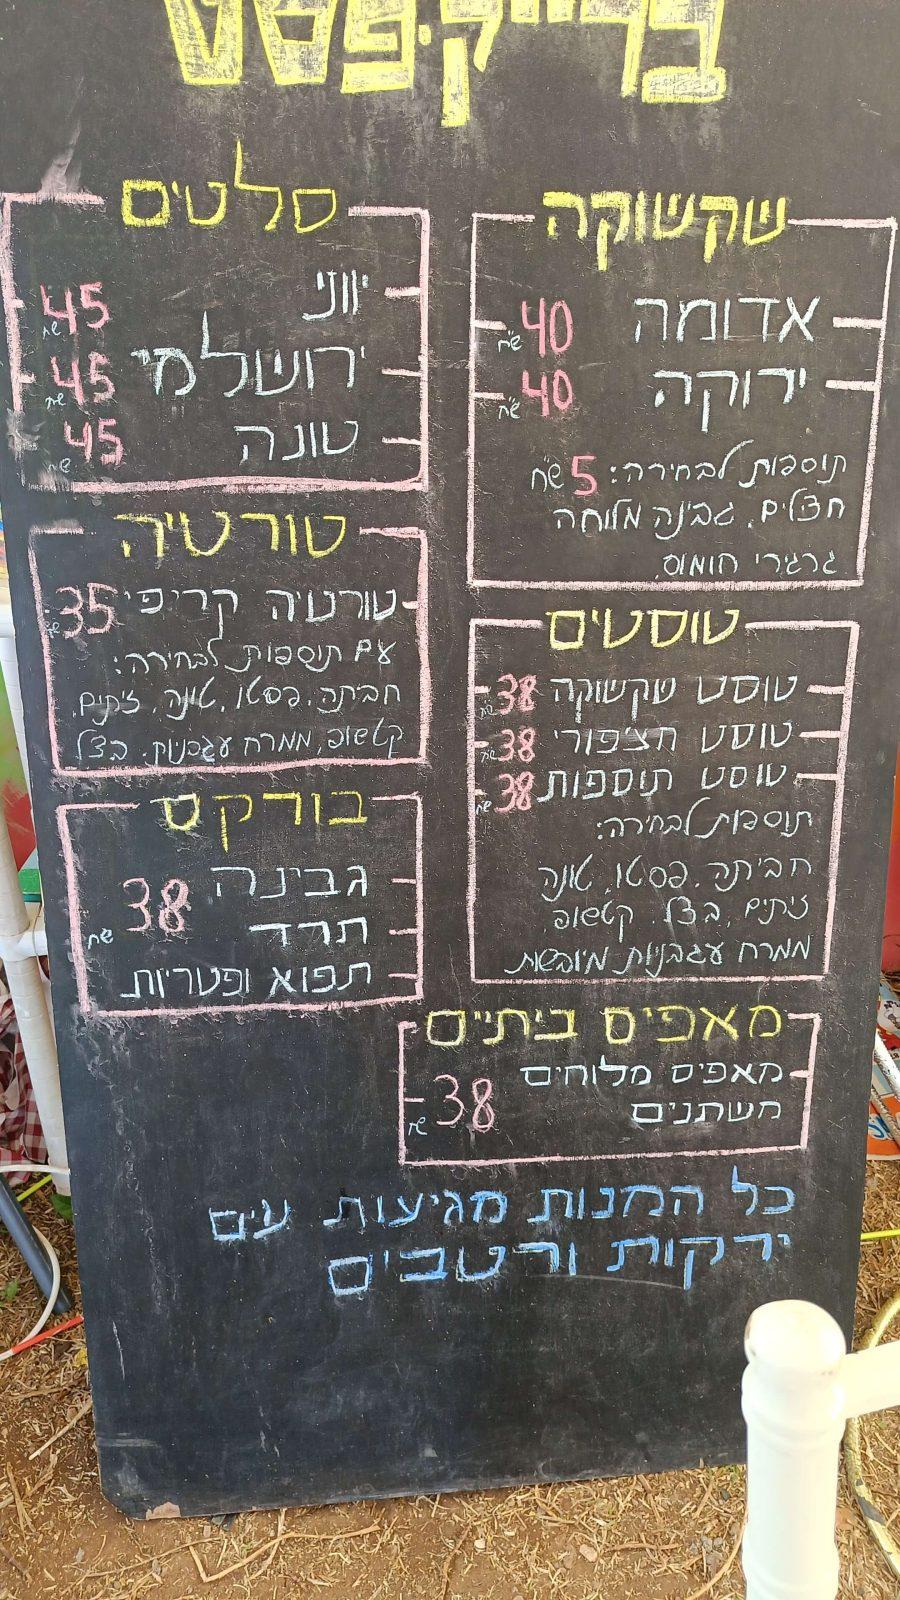 ברייק.פסט
שקשוקה
אדומה 40 ש"ח
ירוקה 40 ש"ח
תוספות לבחירה: 5 ש"ח
חצילים, גבינה מלוחה
גרגירי חומוס.
טוסטים
טוסט שקשוקה 38 שח
טוסט חצפורי 38 שח
טוסט תוספות 38 שח
תוספות לבחירה:
חביתה, פסטו, טונה
זיתים, בצל, קטשופ,
ממרח עגבניות מיובשות
מאפים ביתיים
מאפים מלוחים
משתנים 38 שח
סלטים
יווני 45 שח
ירושלמי 45 שח
טונה 45 שח
טורטיה
טורטיה קריפי 35 שח
עם תוספות לבחירה:
חביתה, פסטו, טונה, זיתים,
קטשופ, ממרח עגבניות, בצל
בורקס
גבינה
תרד 38 שח
תפוא ופטריות
כל המנות מגיעות עים
ירקות ורטבים